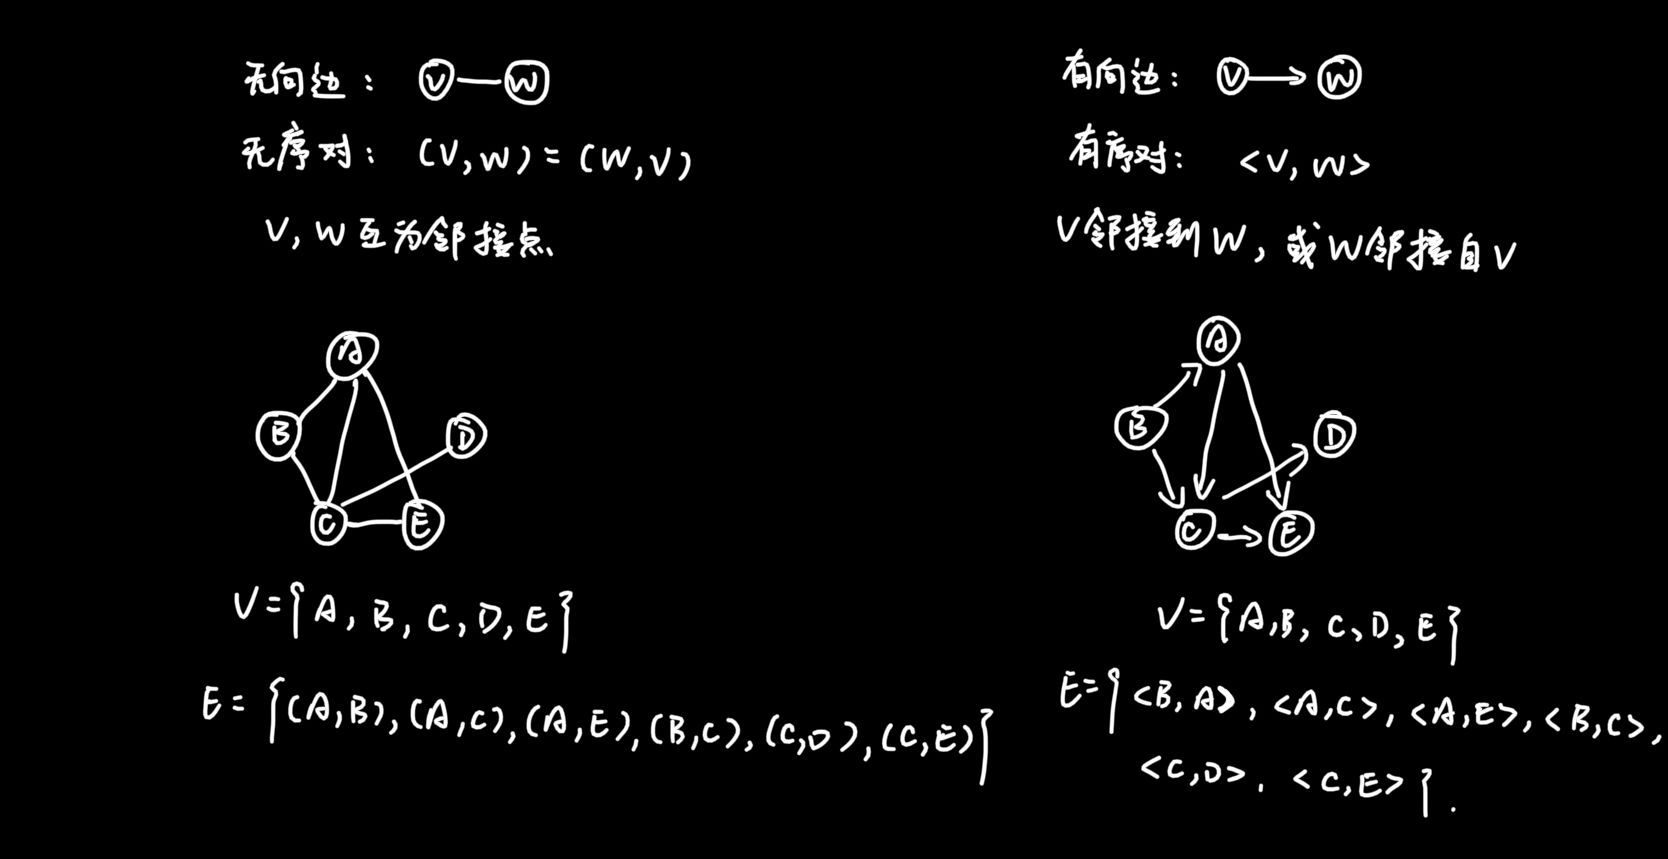 无向边： V — W
无序对： (V,W) = (W,V)
V, W 互为邻接点
A
B
D
C
E
V={A, B, C, D, E}
E={(A,B),(A,C),(A,E),(B,C),(C,D),(C,E)}
有向边： V → W
有序对： <V, W>
V邻接到W，或W邻接自V
A
B
D
C
E
V={A,B, C, D, E}
E={<B, A>, <A,C>, <A,E>, <B,C>,
<C,D>, <C,E>}.